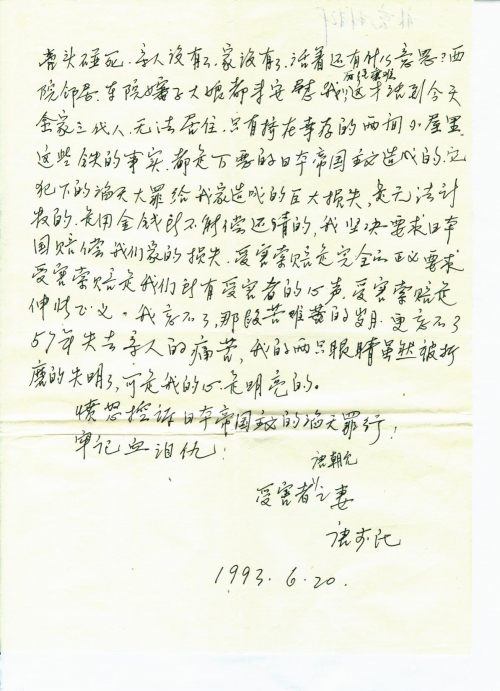 头碰死。亲人没有了，家没有了，活着还有什么意思？西
院邻居，东院婶子大娘都来安慰我，这才活到今天
历经艰难
全家三代人，无法居住，只有挤在幸存的两间小屋里，
这些铁的事实，都是万恶的日本帝国主义造成的，它
犯下的滔天大罪给我家造成的巨大损失，是无法计
算的，是用金钱所不能偿还清的，我坚决要求日本
国赔偿我们家的损失，受害索赔是完全的正义要求
受害索赔是我们所有受害者的心声，受害索赔是
伸张正义。我忘不了，那段苦难的岁月，更忘不了
57年失去亲人的痛苦，我的两只眼睛虽然被折
磨的失明了，可是我的心是明亮的。
愤怒控诉日本帝国主义的滔天罪行！
牢记血泪仇！
受害者之妻
1993.6.20.